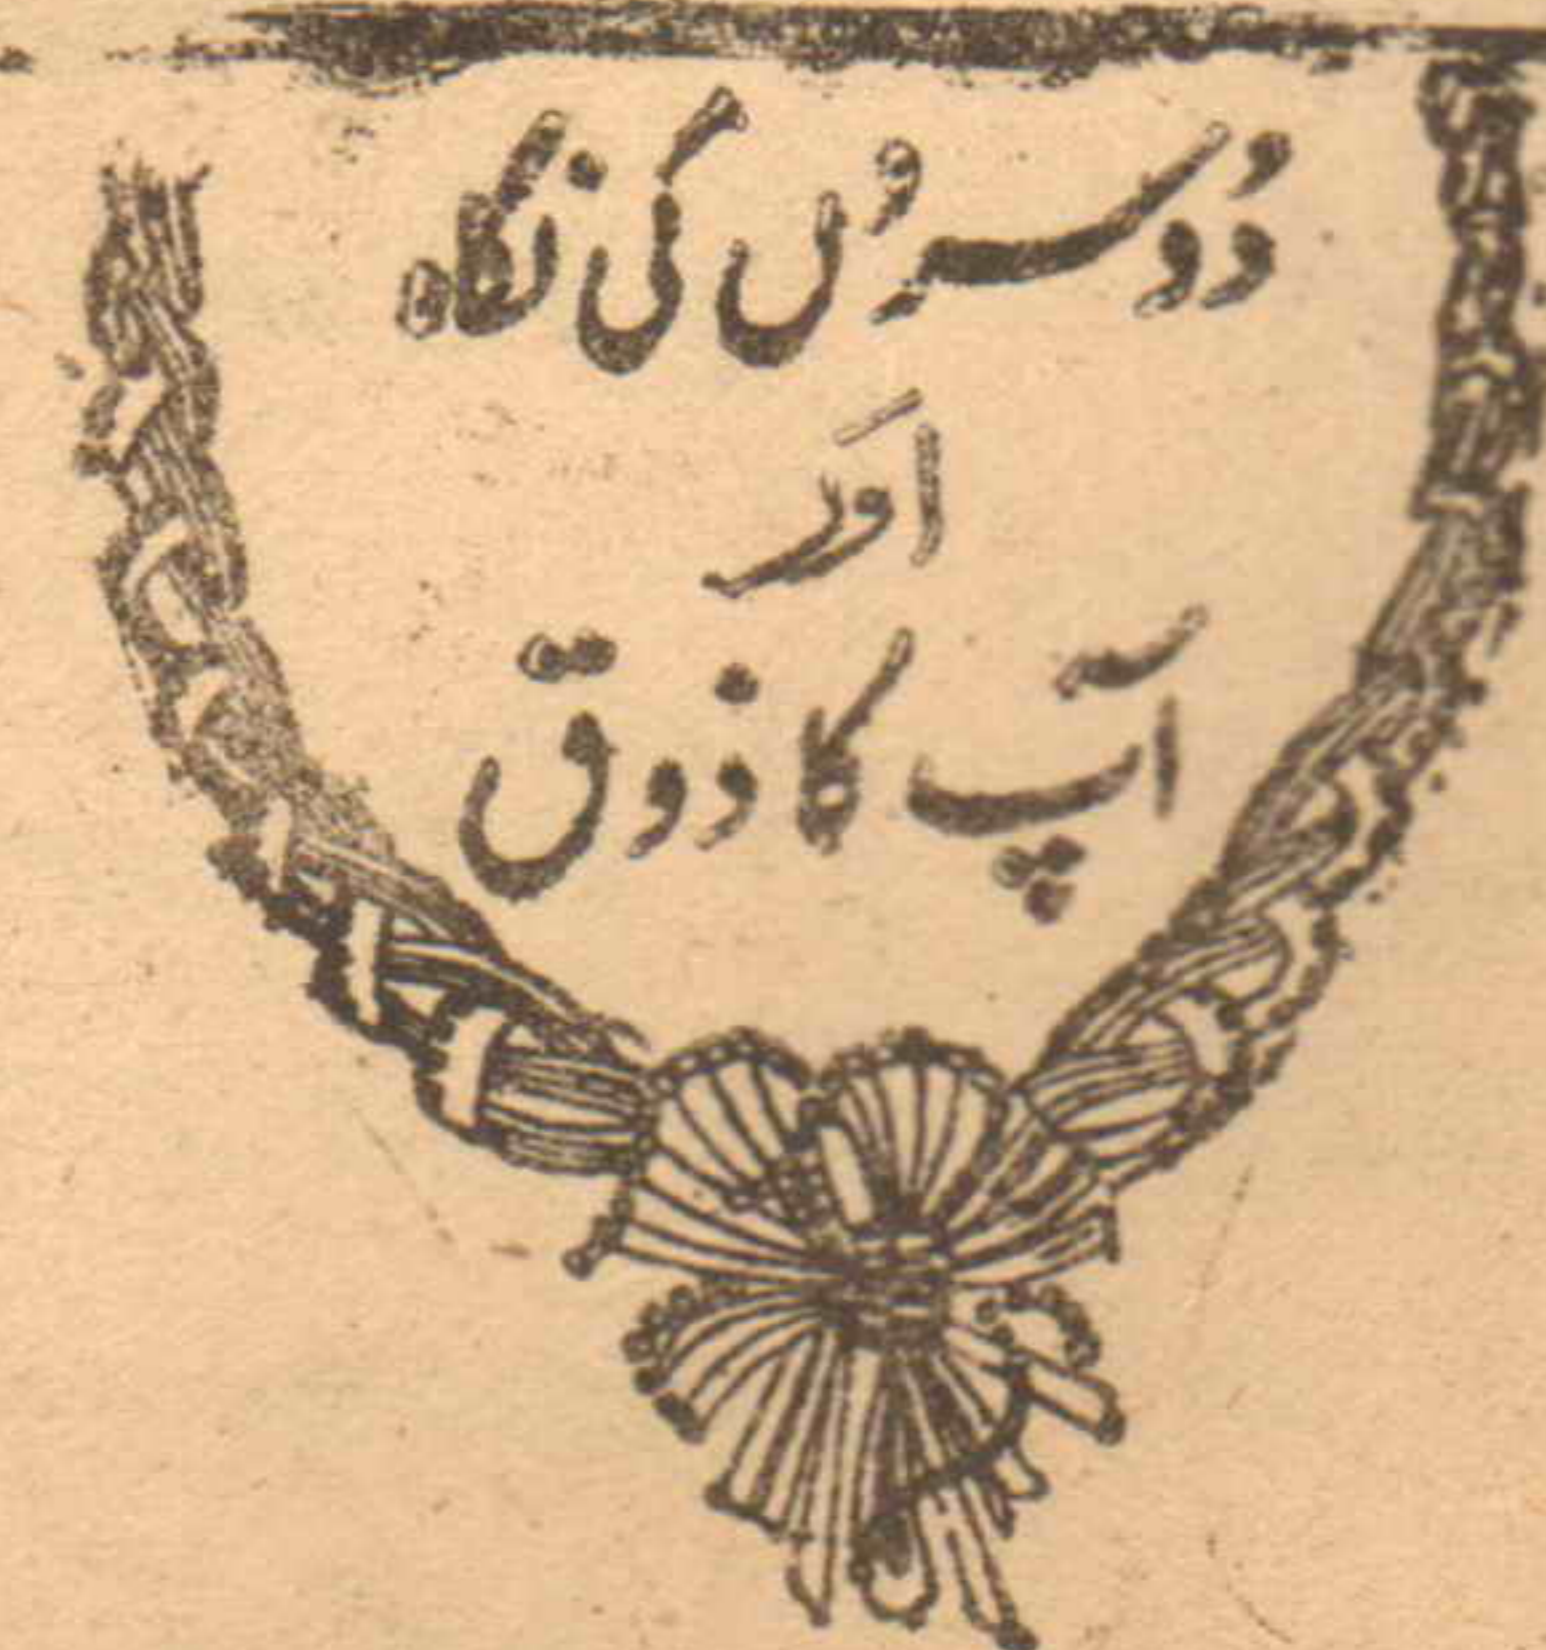 دُوسرُں کی نگاہ
اَور
آپ کا ذوق